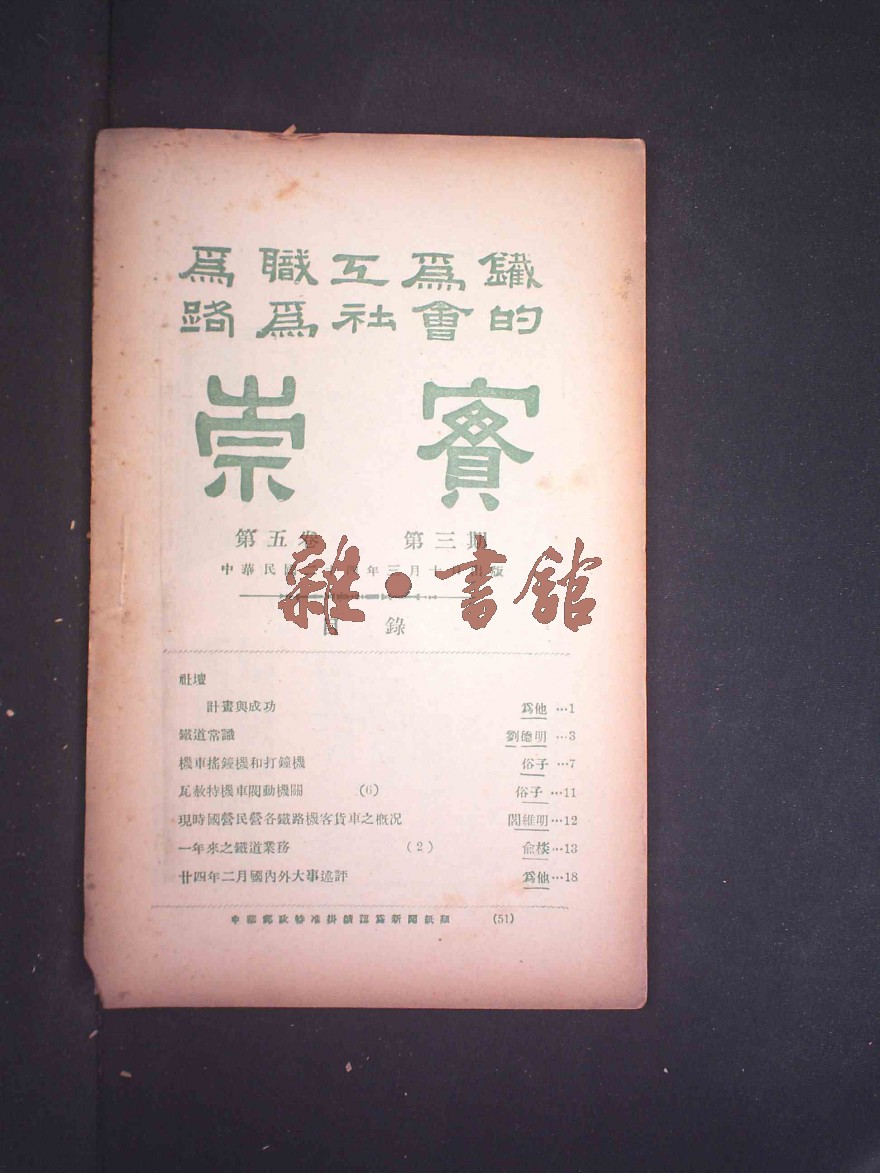 爲職工爲鐵
路爲社會的
崇實
第五卷 第三期
中華民國二十四年三月十日出版
雜·書館
目錄
社壇
計畫與成功 爲他…1
鐵道常識 劉德明…3
機車搖鐘機和打鐘機 俗子…7
瓦敘特機車閥動機關 (6) 俗子…11
現時國營民營各鐵路機客貨車之概況 閻維明…12
一年來之鐵道業務 (2) 俞棪…13
廿四年二月國內外大事述評 爲他…18
中華郵政特准掛號認爲新聞紙類 (51)